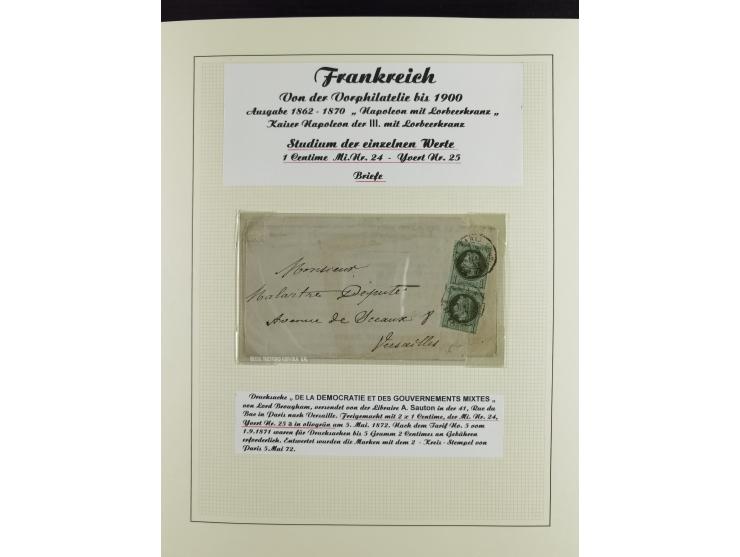 Frankreich
Von der Vorphilatelie bis 1900
Ausgabe 1862 - 1870 „ Napoleon mit Lorbeerkranz „
Kaiser Napoleon der III. mit Lorbeerkranz
Studium der einzelnen Werte
1 Centime Mi.Nr. 24 - Yvert Nr. 25
Briefe
Monsieur
Malartre Député
Avenue de Sceaux 8
Versailles
Drucksache „ DE LA DEMOCRATIE ET DES GOUVERNEMENTS MIXTES „
von Lord Brougham, versendet von der Libraire A. Sauton in der 41, Rue du
Bac in Paris nach Versaille. Freigemarkt mit 2 x 1 Centime, der Mi. Nr. 24,
Yvert Nr. 25 d in olivgrün am 5. Mai. 1872. Nach dem Tarif No. 5 vom
1.9.1871 waren für Drucksachen bis 5 Gramm 2 Centimes an Gebühren
erforderlich. Entwertet wurden die Marken mit dem 2 - Kreis - Stempel von
Paris 5.Mai 72.